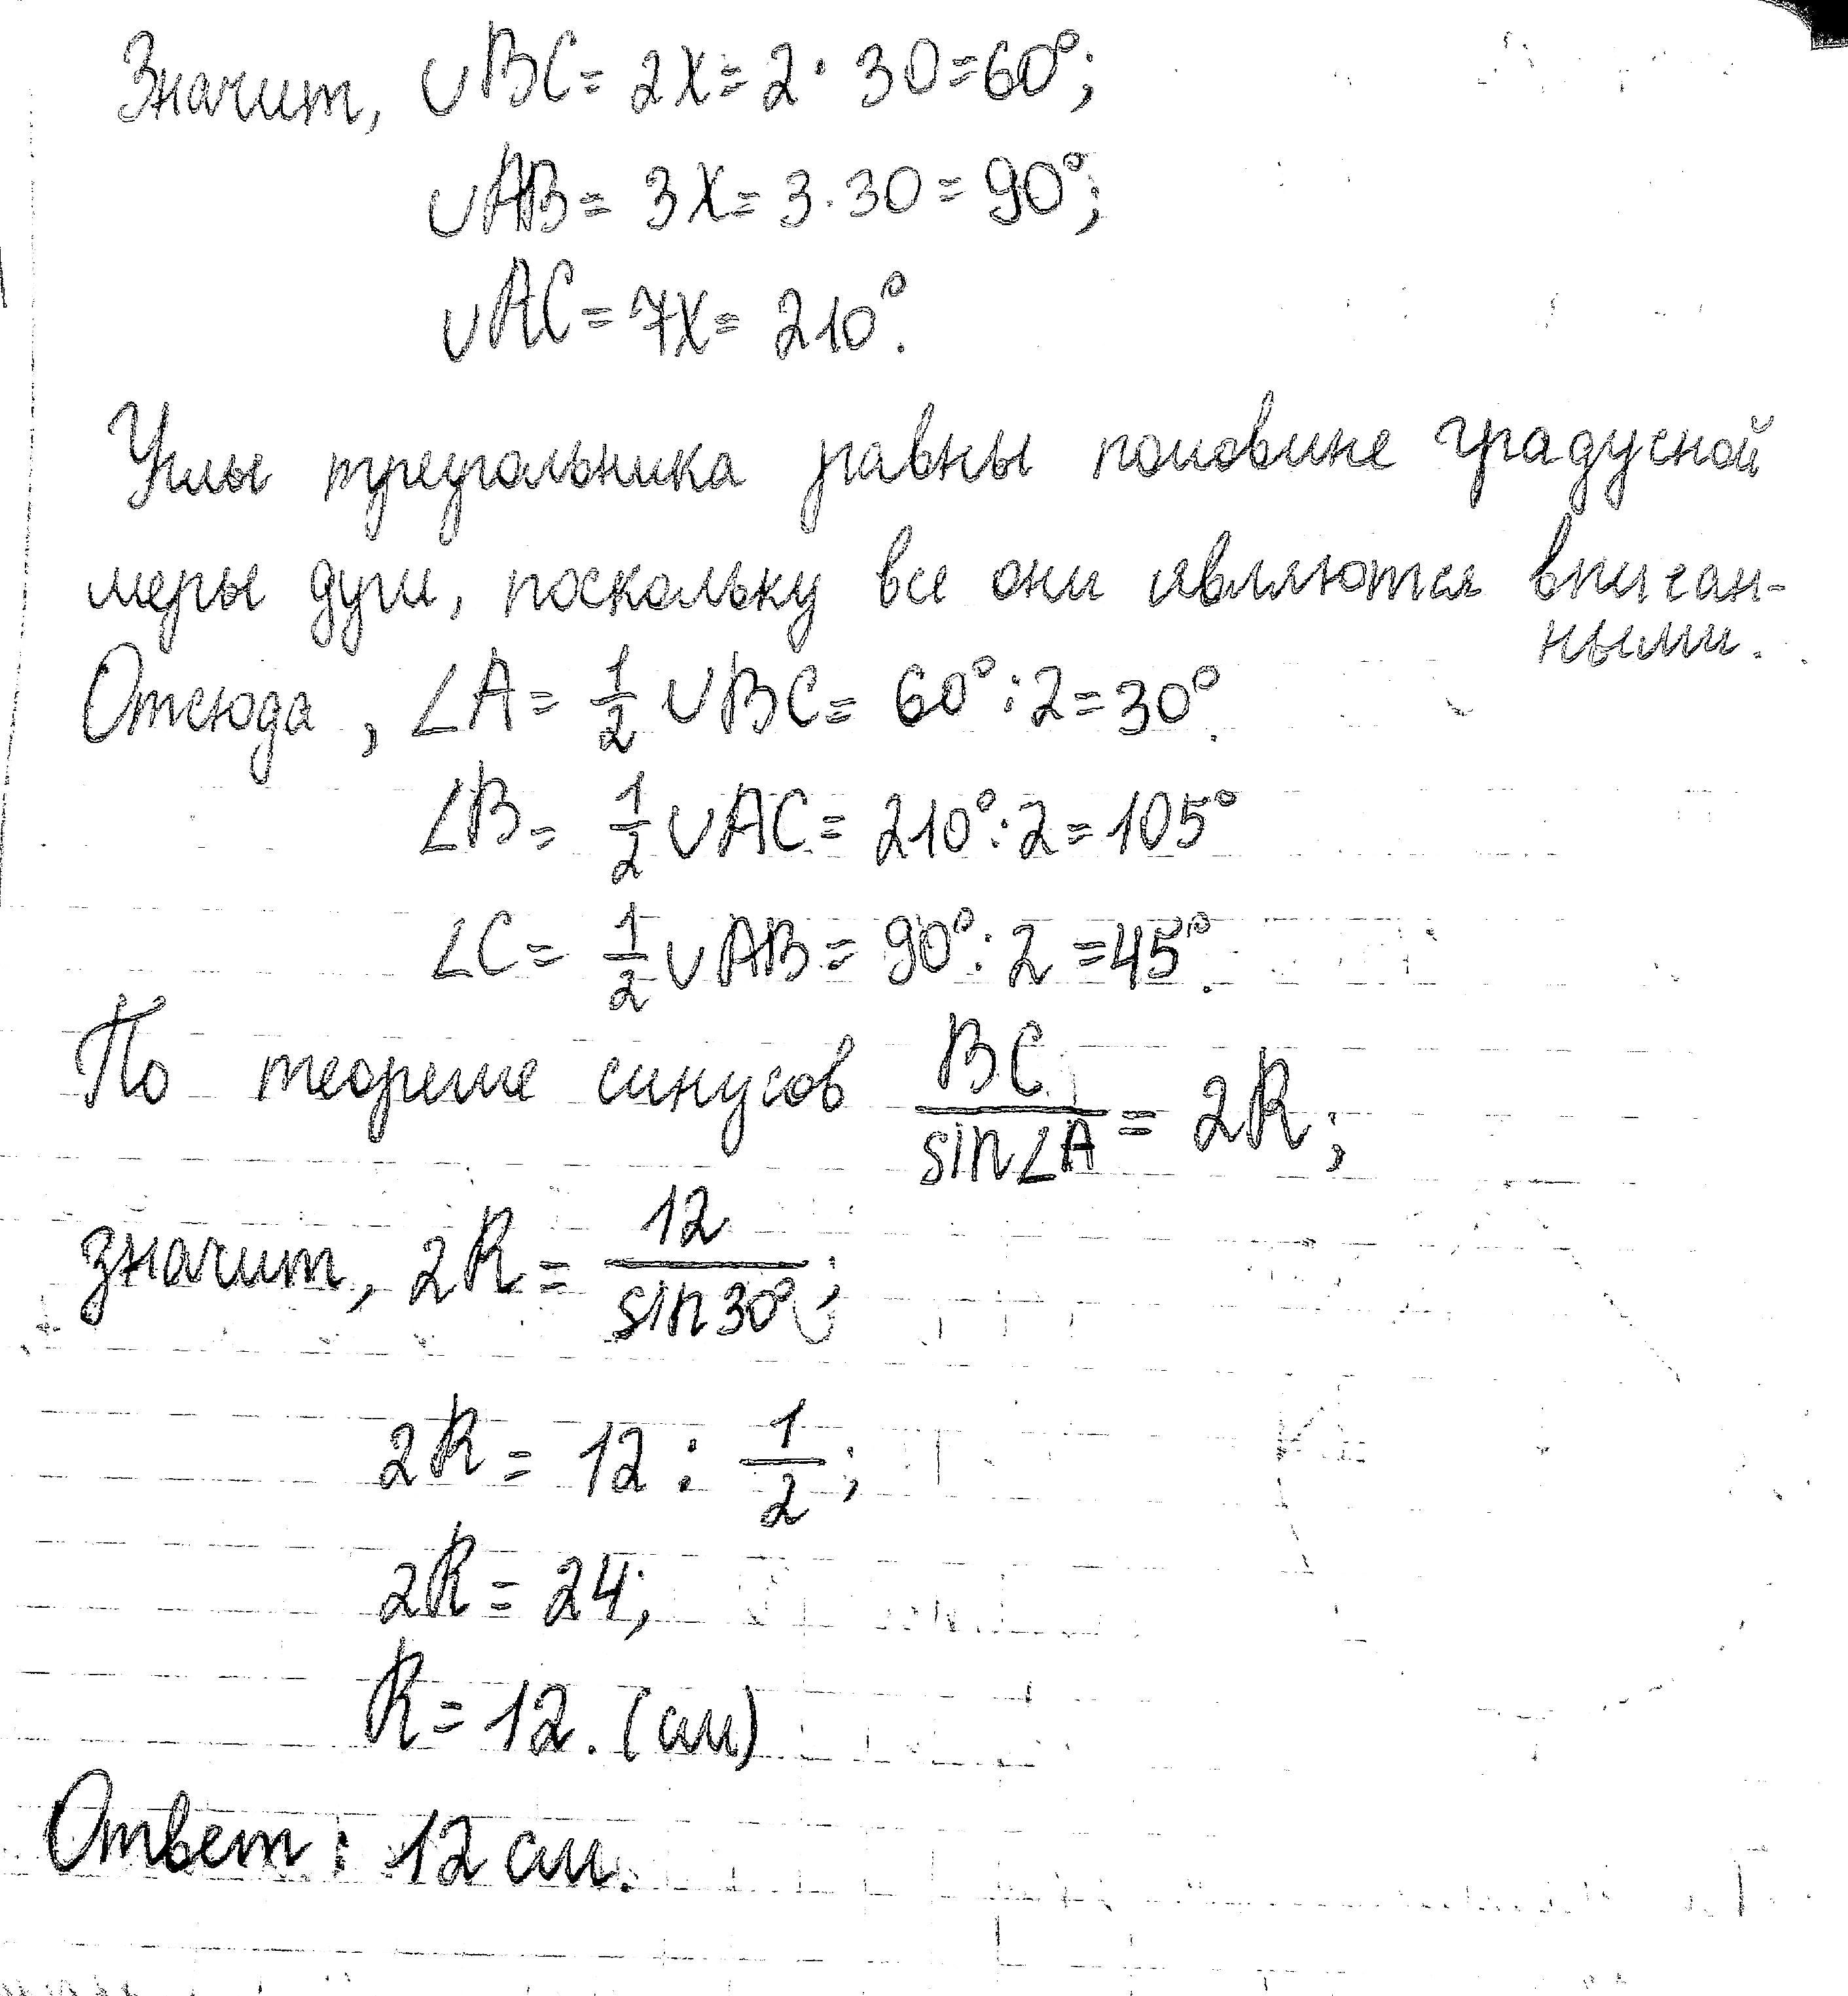 Значит, ∪BC = 2x = 2 · 30 = 60°;
∪AB = 3x = 3 · 30 = 90°;
∪AC = 7x = 210°.
Углы треугольника равны половине градусной
меры дуги, поскольку все они являются вписан-
ными.
Отсюда, ∠A = 1/2 ∪BC = 60° : 2 = 30°.
∠B = 1/2 ∪AC = 210° : 2 = 105°
∠C = 1/2 ∪AB = 90° : 2 = 45°.
По теореме синусов BC/sin∠A = 2R;
значит, 2R = 12/sin30°;
2R = 12 : 1/2;
2R = 24;
R = 12. (см)
Ответ: 12 см.